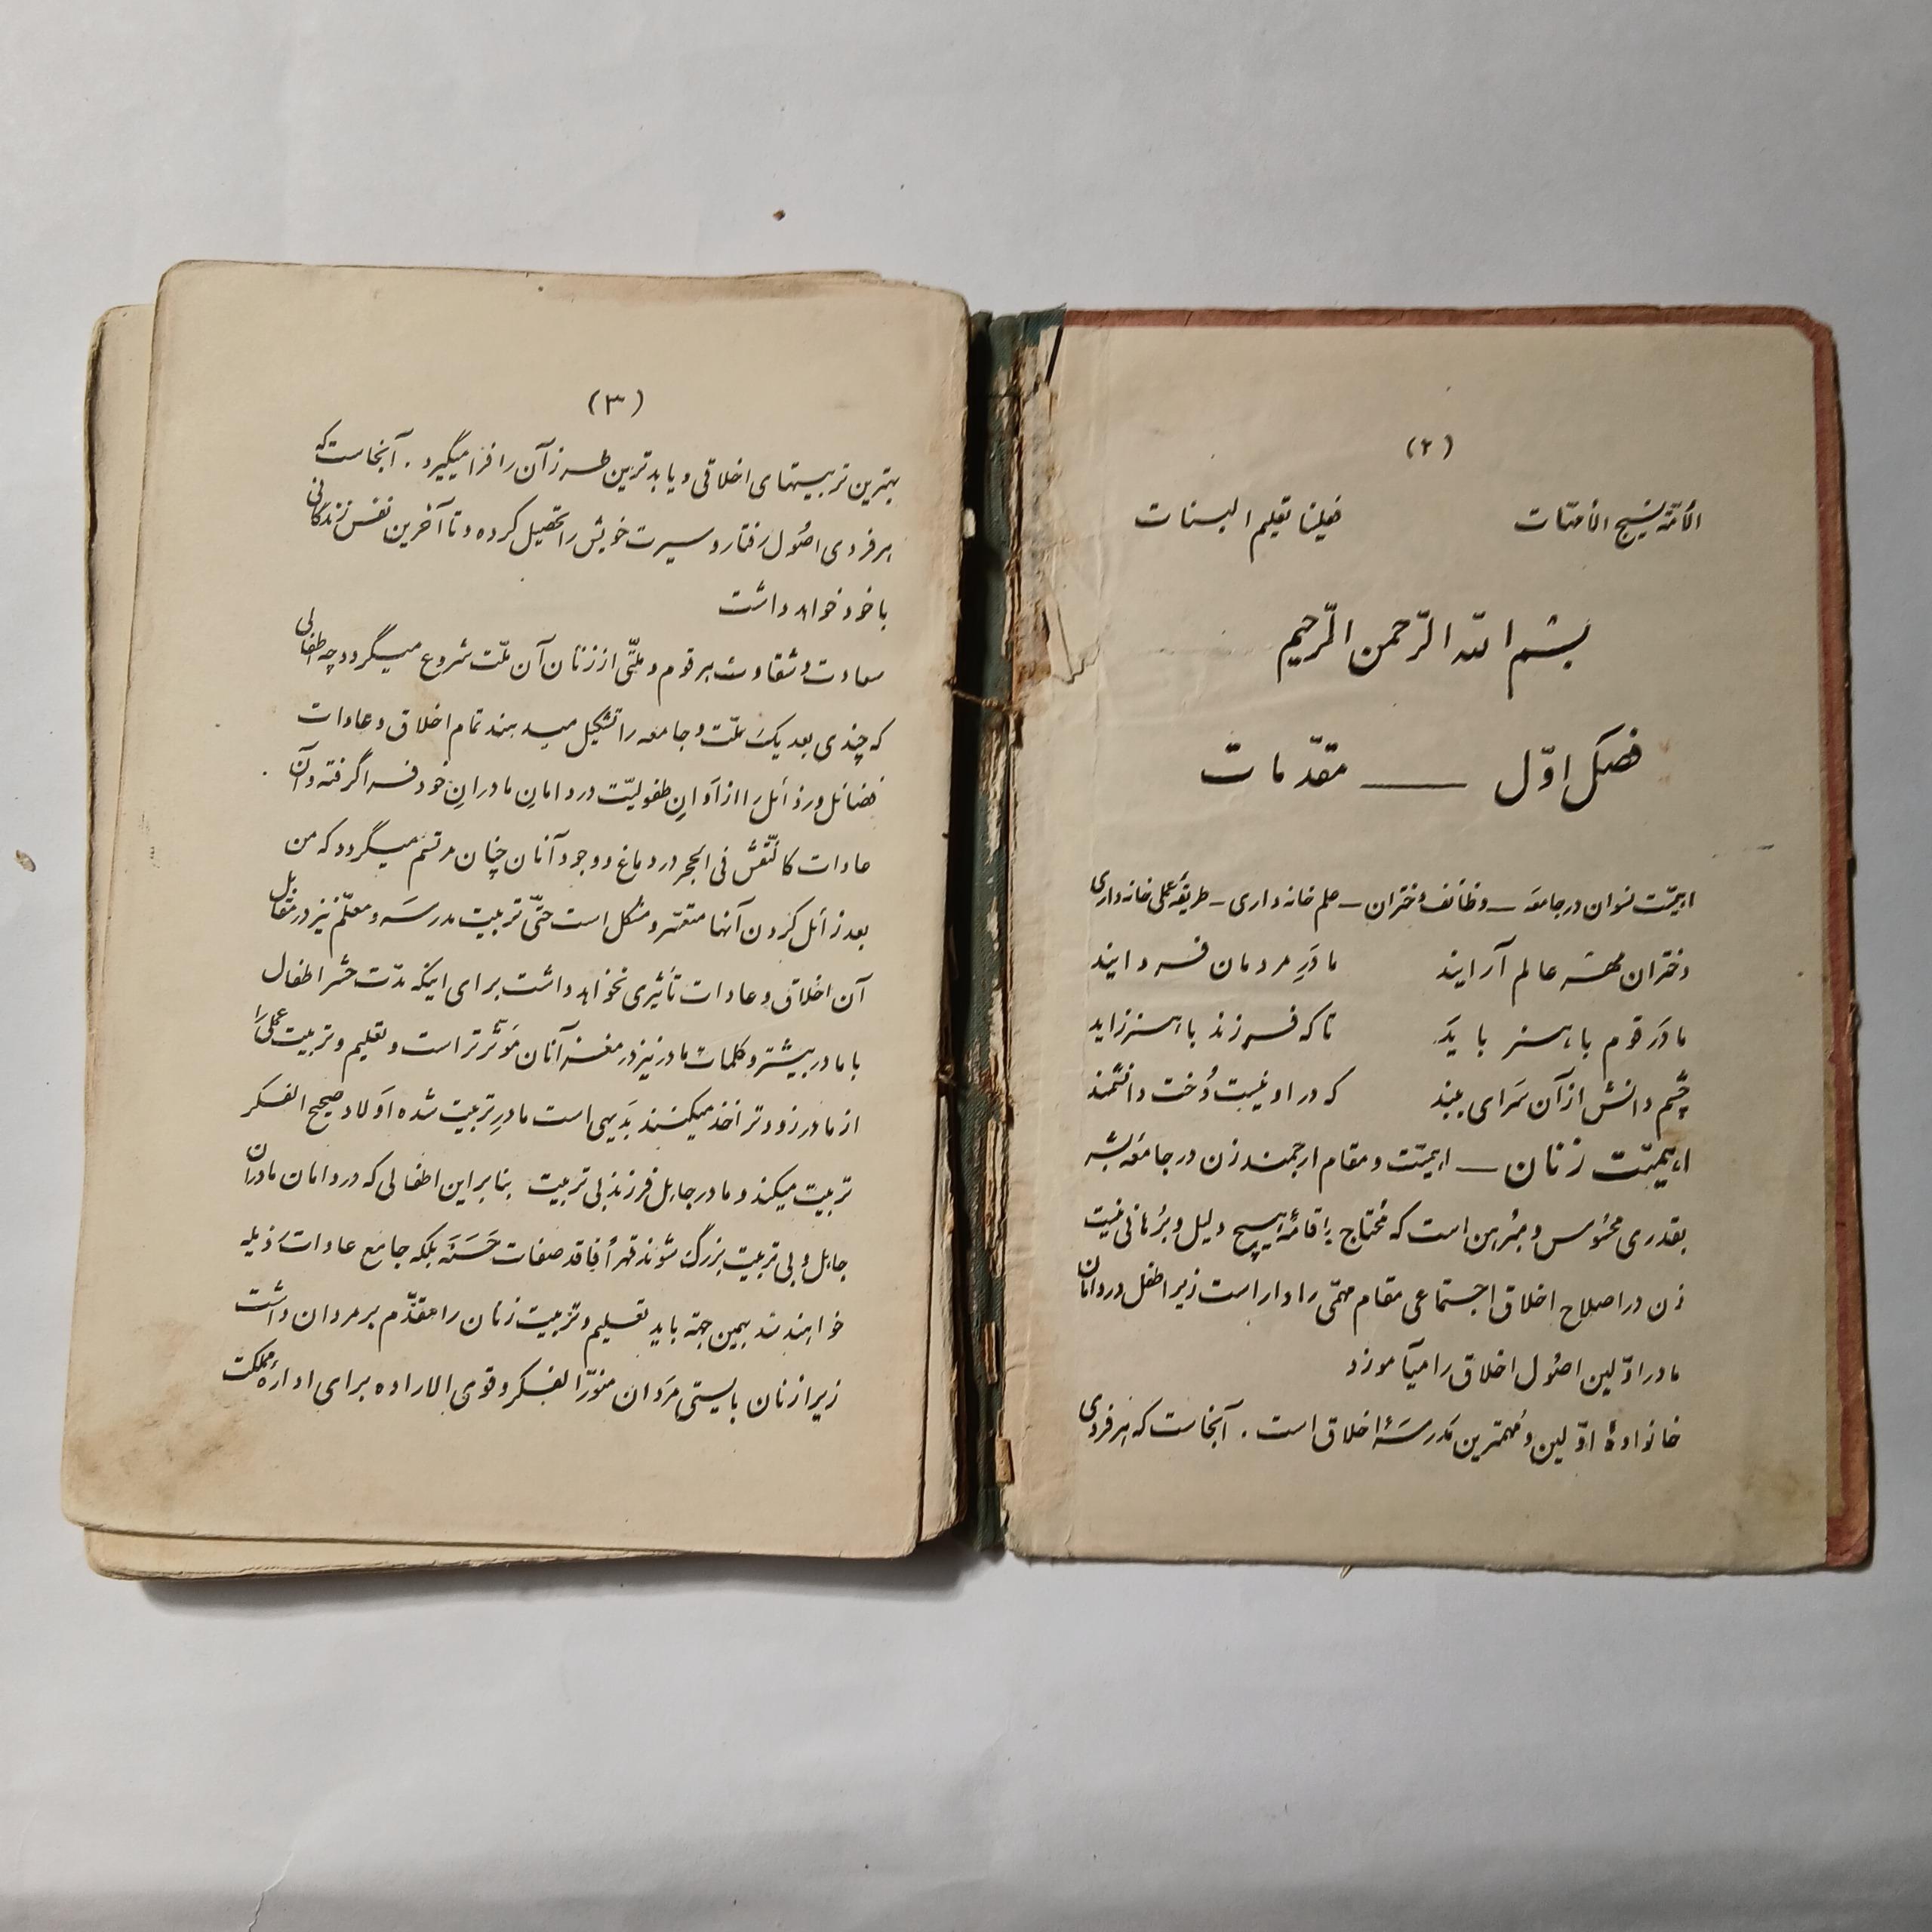 (۲)
الأمّة نسیج الأمّهات فعلینا تعلیم البنات
بسم الله الرّحمن الرّحیم
فصل اوّل ــ مقدّمات
اهمیّت نسوان در جامعه ــ وظائف دختران ــ علم خانه داری ــ طریقهٔ عملی خانه داری
دختران مهتر عالم آرایند مادَرِ مردمان فردایند
مادَر قوم با هنر بایَد تا که فرزند با هنر زاید
چشم دانش از آن سَرای ببند که در او نیست دُخت دانشمند
اهمیّت زنان ــ اهمیّت و مقام ارجمند زن در جامعهٔ بشر
بقدری محسُوس و مبُرهن است که مُحتاج باقامهٔ هیچ دلیل و بُرهانی نیست
زن در اصلاح اخلاق اجتماعی مقام مهمّی را دار است زیرا طفل در دامان
مادر اوّلین اصُول اخلاق را میآموزد
خانوادهٔ اوّلین و مُهمترین مَدرسَهٔ اخلاق است . آنجاست که هر فردی
(۳)
بهترین تربیتهای اخلاقی و یا بدترین طرز آن را فرا میگیرد . آنجاست که
هر فردی اصُول رفتار و سیرت خویش را تحصیل کرده و تا آخرین نفس زندگانی
با خود خواهد داشت
سعادت و شقاوت هر قوم و ملّتی از زنان آن ملّت شروع میگردد چه اطفالی
که چندی بعد یک ملّت و جامعه را تشکیل میدهند تمام اخلاق و عادات
فضائل و رذائل را از أوانِ طفولیّت در دامانِ مادرانِ خود فرا گرفته و آن
عادات کالنّقش فی الحجر در دماغ و وجود آنان چنان مرتسم میگردد که من
بعد زائل کردن آنها متعسّر و مشکل است حتّی تربیت مدرسَه و معلّم نیز در مقابل
آن اخلاق و عادات تأثیری نخواهد داشت برای اینکه مدّت حشر اطفال
با مادر بیشتر و کلمات مادر نیز در مغز آنان مؤثّرتر است و تعلیم و تربیت عملی را
از مادر زودتر اخذ میکنند بَدیهی است مادرِ تربیت شده اَولاد صحیح الفکر
تربیت میکند و مادر جاهل فرزند بی تربیت بنابر این اطفالی که در دامان مادران
جاهل و بی تربیت بزرگ شوند قهراً فاقد صفات حَسَنَه بلکه جامع عادات رَذیله
خواهند شد بهمین جهة باید تعلیم و تربیت زنان را مقدّم بر مردان داشت
زیرا زنان بایستی مَردان منوّر الفکر و قوی الاراده برای ادارهٔ مملکت